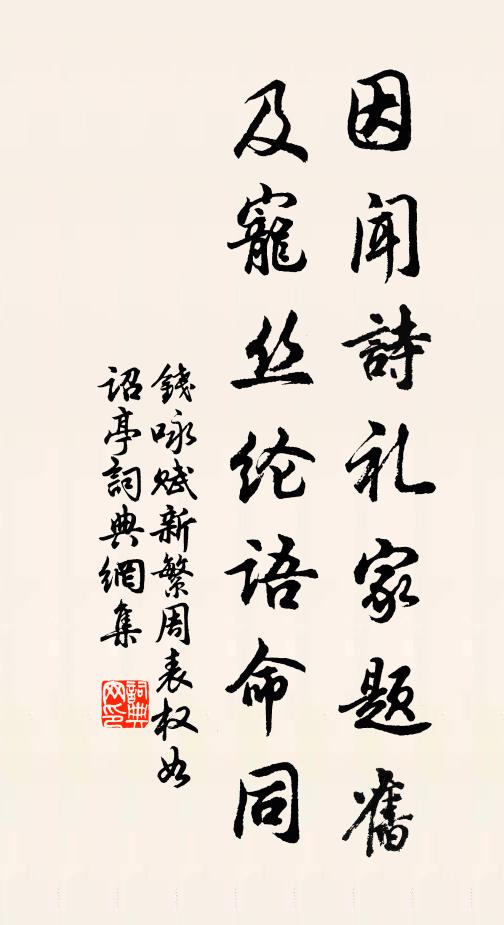 因闻詩礼家题舊
及寵丝纶语命同
錢咏赋新繁周表权如
詔亭詞典網集
詞典
网印